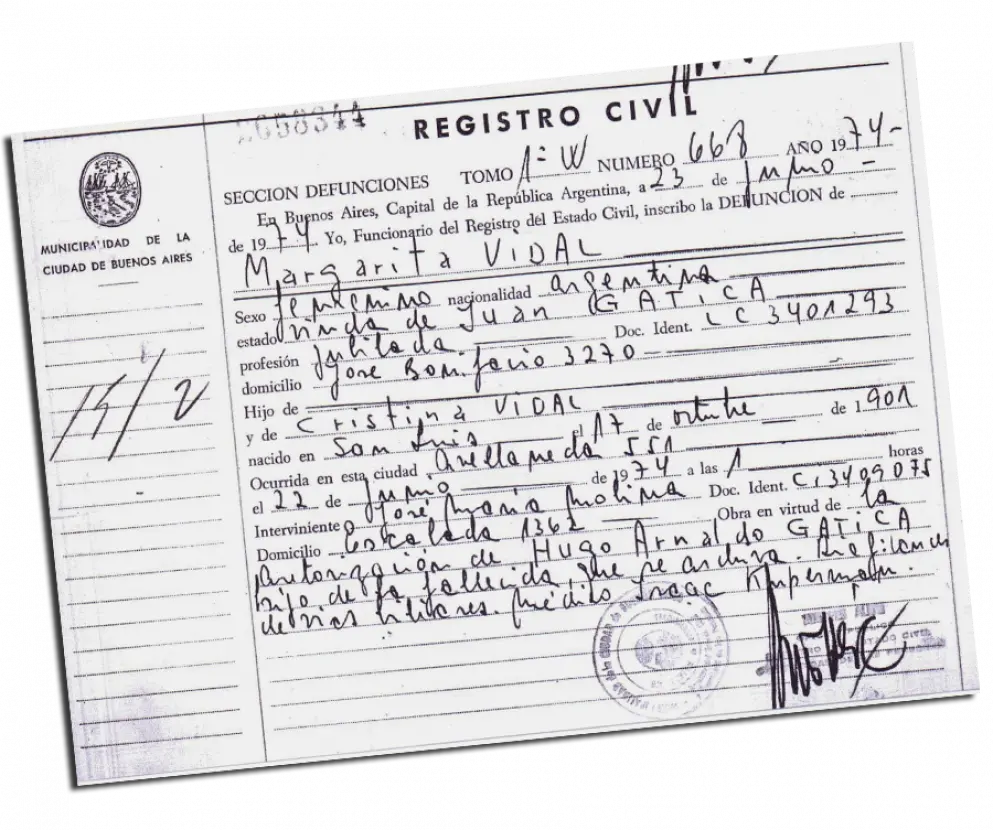 REGISTRO CIVIL
SECCION DEFUNCIONES TOMO 1º W NUMERO 668 AÑO 1974-
En Buenos Aires, Capital de la República Argentina, a 23 de Junio -
de 1974 Yo, Funcionario del Registro del Estado Civil, inscribo la DEFUNCION de
Margarita VIDAL
Sexo femenino nacionalidad argentina
estado viuda de Juan GATICA
profesión jubilada Doc. Ident. LC 3401293
domicilio José Bonifacio 3270
Hijo de
y de Cristina VIDAL
nacido en San Luis el 17 de octubre de 1901
Ocurrida en esta ciudad Avellaneda 551
el 22 de Junio de 1974 a las 1 horas
Interviniente José María Molina Doc. Ident. C.I 3409075
Domicilio Escalada 1362 Obra en virtud de la
autorización de Hugo Arnaldo GATICA
hijo de la fallecida, que se archiva.
de vias biliares. Médico Isaac
MUNICIPALIDAD DE LA
CIUDAD DE BUENOS AIRES
15/2